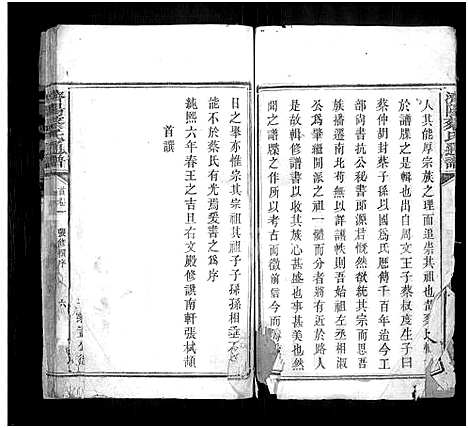 濟陽蔡氏通譜
人其能厚宗族之理而追崇其祖也昔蔡
於譜牒之是以明且備出自周文王子蔡叔度生子曰
蔡仲胡封蔡子孫以國爲氏歷傳千百年迨今工
部尚書抗公秘書郎源君慨然欲統其宗而恩吾
族播遷南北苟無以詳記軼則吾始祖左丞相淑
公爲肇繼開派祖一體而分者將有以近於路人
是故輯修譜書以收其族心甚盛也意甚美也然
之譜牒之作所以考古而徵前信今而
日之舉亦惟宗其宗祖其祖子子孫孫相垂不
於不蔡氏有光焉爰書之爲序
純熙六年春王之吉旦右文殿修譔南軒張栻頡
首譔
濟陽蔡氏通譜
首卷一
襲修原序
六